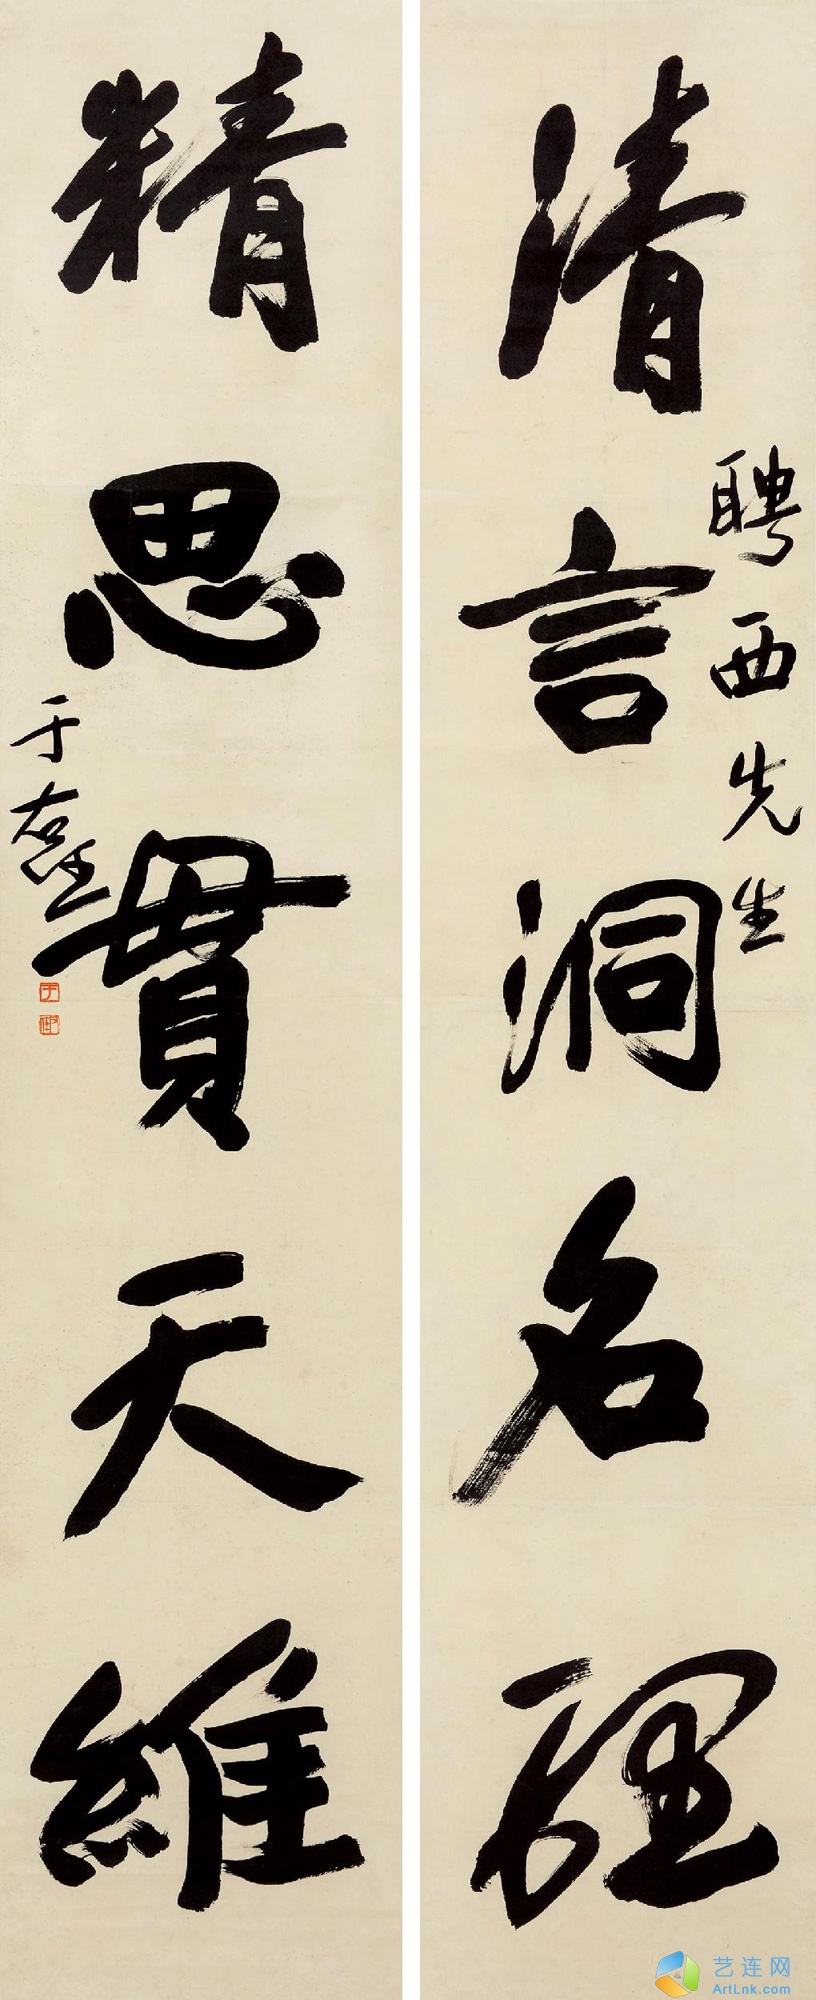 清言洞名理
聘西先生
精思貫天維
于右任
艺连网
ArtLnk.com